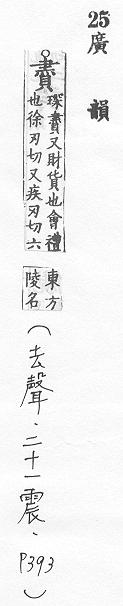 25廣韻
賮琛賮又財貨也會禮
也徐刃切又疾刃切六
東方
陵名
(去聲.二十一震.P393)